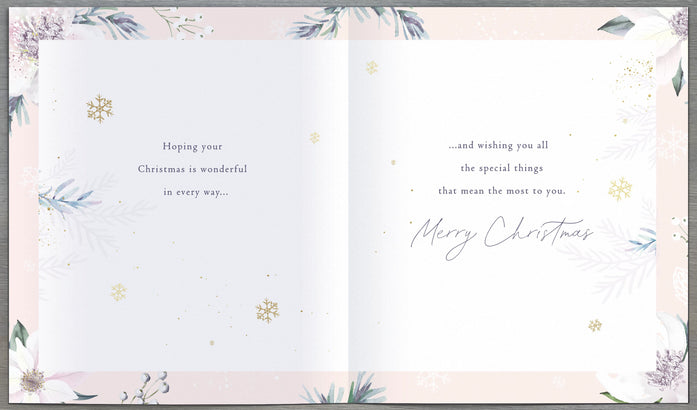 Hoping your
Christmas is wonderful
in every way...
...and wishing you all
the special things
that mean the most to you.
Merry Christmas